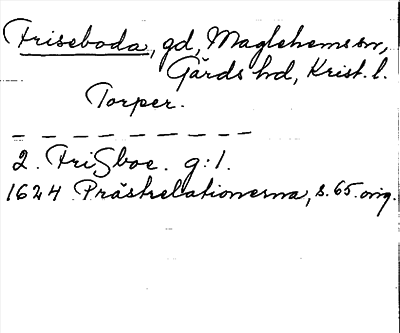 Friseboda, gd, Maglehems sn,
Gärds hd, Krist. l.
Torper.
2. FriSboe. g:1.
1624 Prästrelationerna, s. 65. orig.